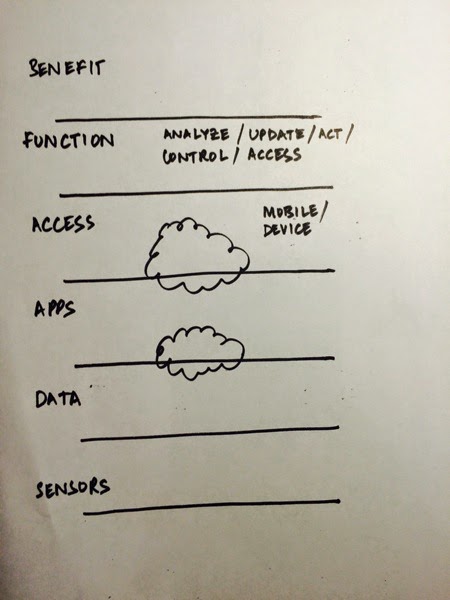 BENEFIT
FUNCTION
ANALYZE / UPDATE / ACT /
CONTROL / ACCESS
ACCESS
MOBILE /
DEVICE
APPS
DATA
SENSORS